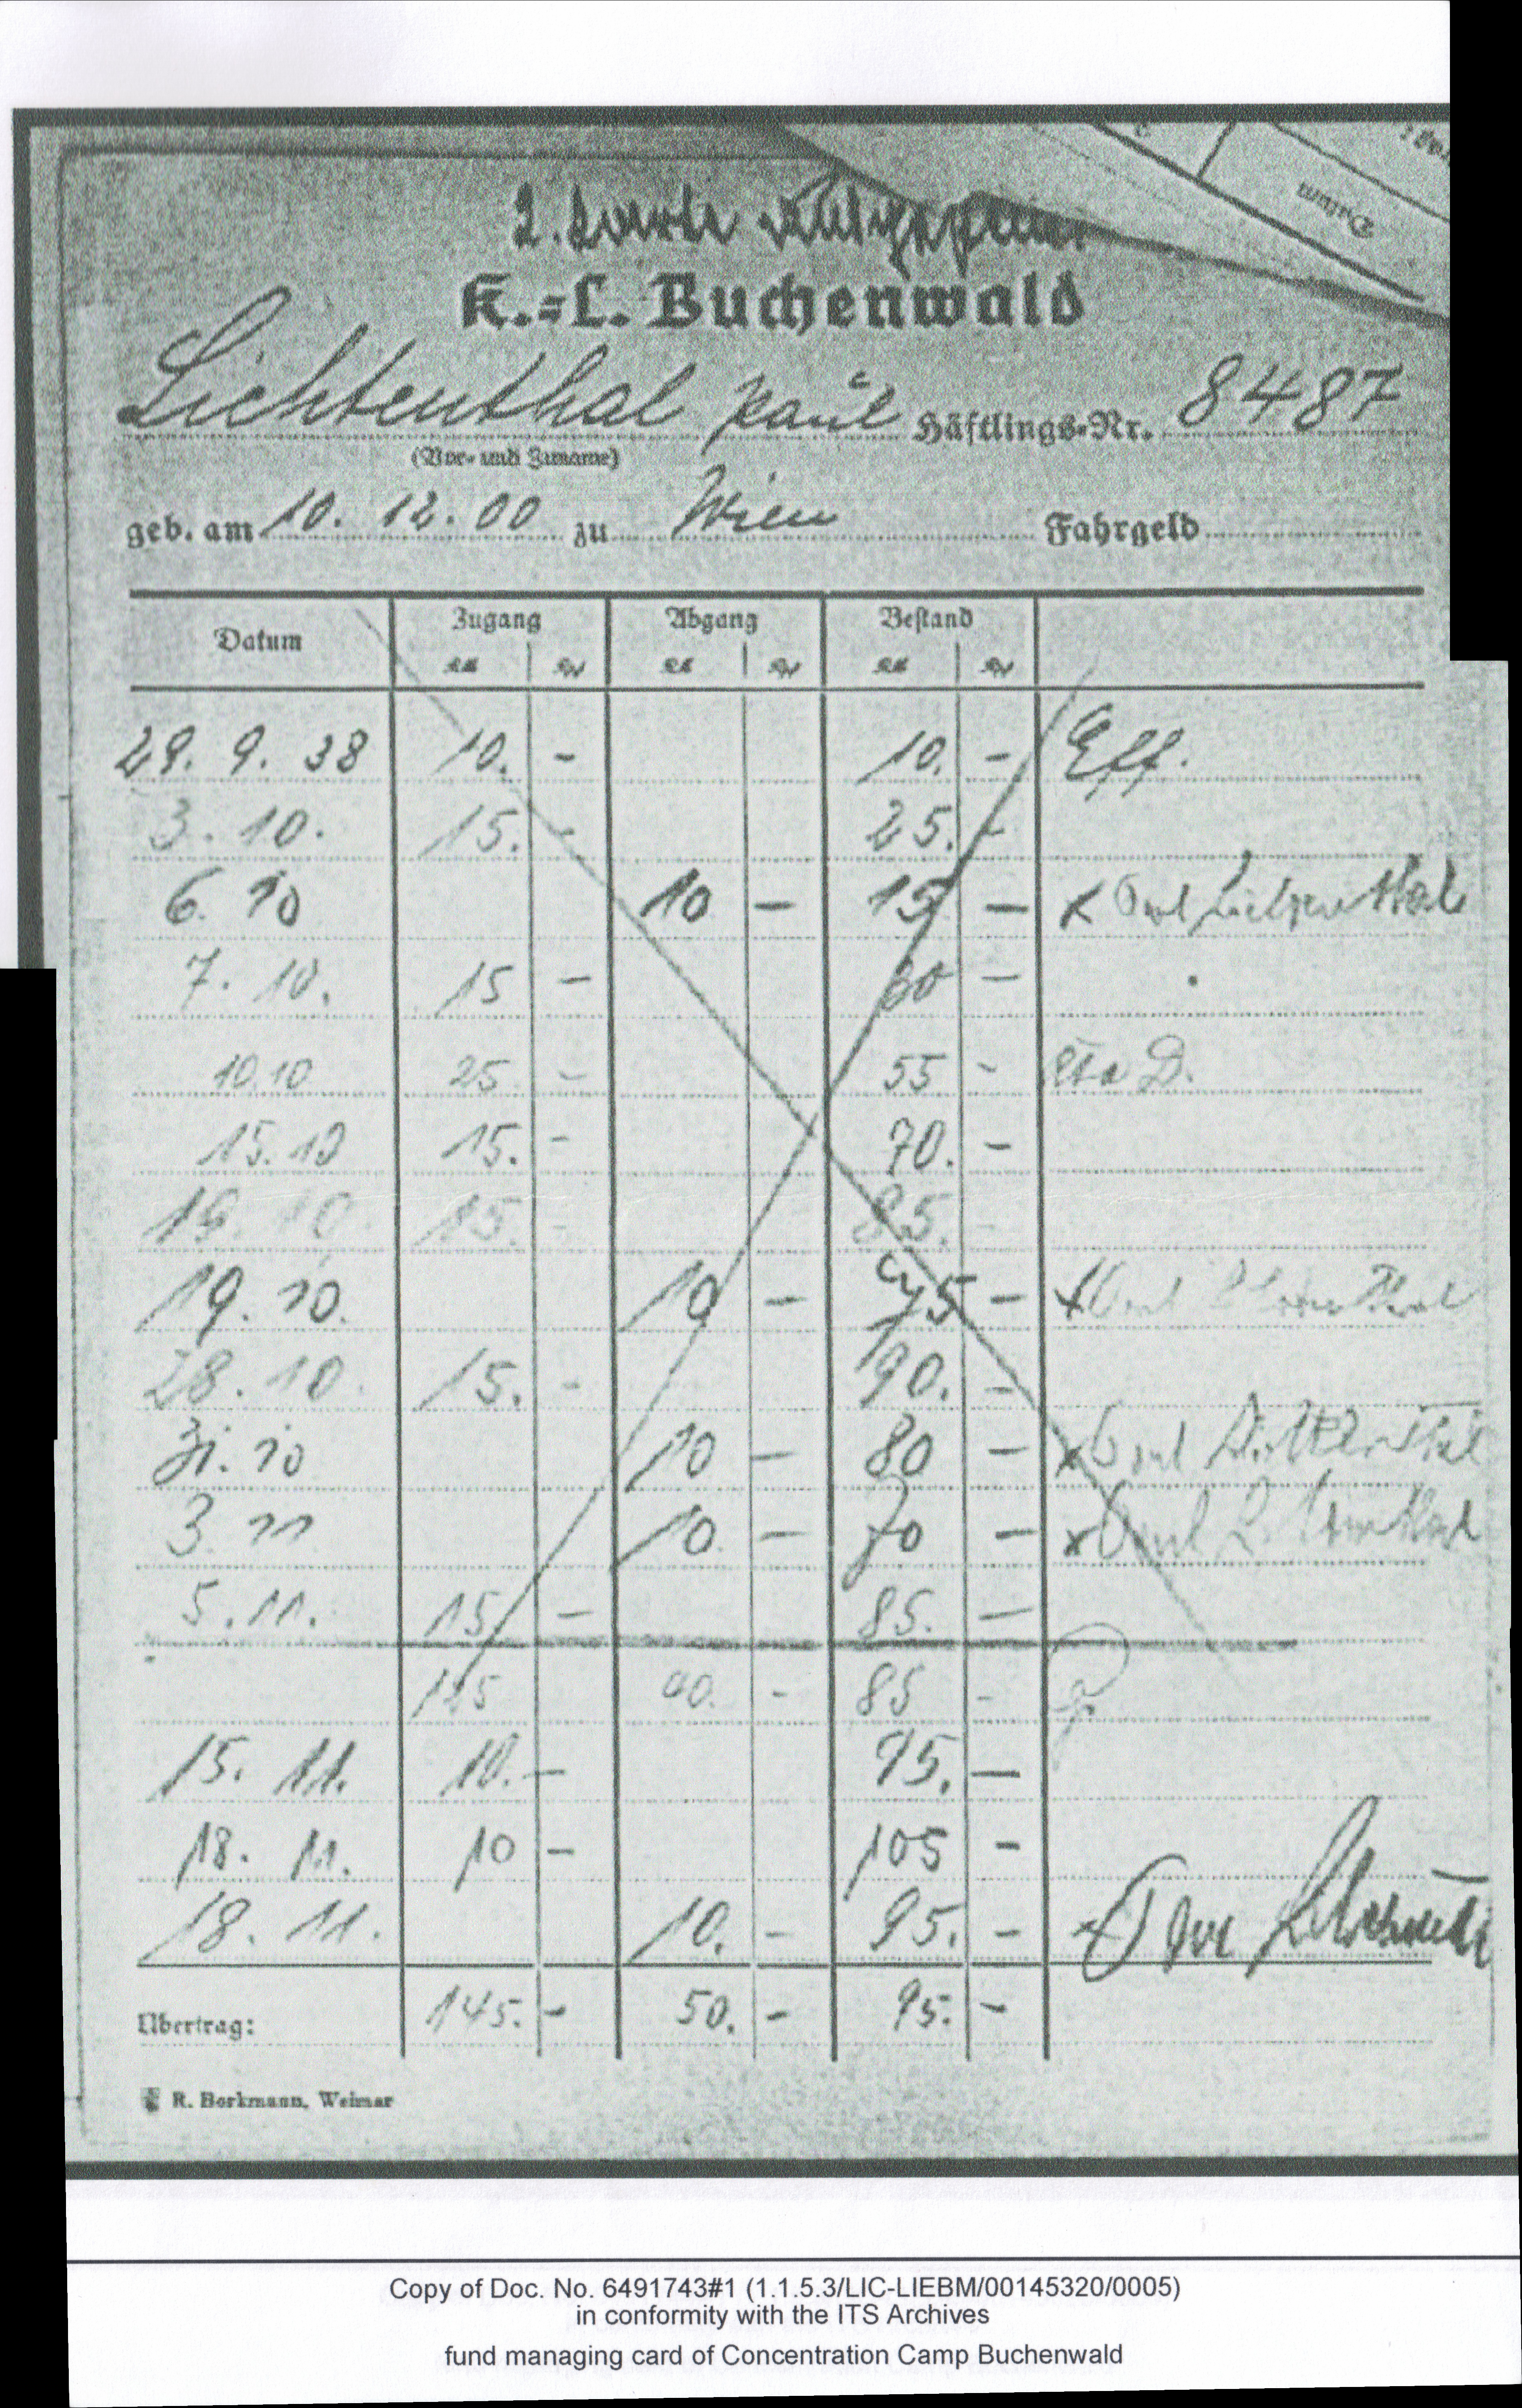 2. Karte
K.=L. Buchenwald
Lichtenthal Paul Häftlings-Nr. 8487
(Vor- und Zuname)
geb. am 10. 12. 00 zu Wien Fahrgeld
Datum Zugang Abgang Bestand
29. 9. 38 10. - 10. - Eff.
3. 10. 15. - 25. -
6. 10 10 - 15 - x Paul Lichtenthal
7. 10. 15 - 30 -
10.10 25 - 55 -
15.10 15. - 70. -
19. 10. 15. - 85. -
19. 10. 10 - 75 - x Paul Lichtenthal
28. 10. 15. - 90. -
31. 10 10 - 80 - x Paul Lichtenthal
3. 11 10. - 70 - x Paul Lichtenthal
5. 11. 15 - 85. -
125 40. - 85 -
15. 11. 10. - 95. -
18. 11. 10 - 105 -
18. 11. 10. - 95. -
Übertrag: 145. - 50. - 95. -
R. Borkmann, Weimar
Datum
Copy of Doc. No. 6491743#1 (1.1.5.3/LIC-LIEBM/00145320/0005)
in conformity with the ITS Archives
fund managing card of Concentration Camp Buchenwald